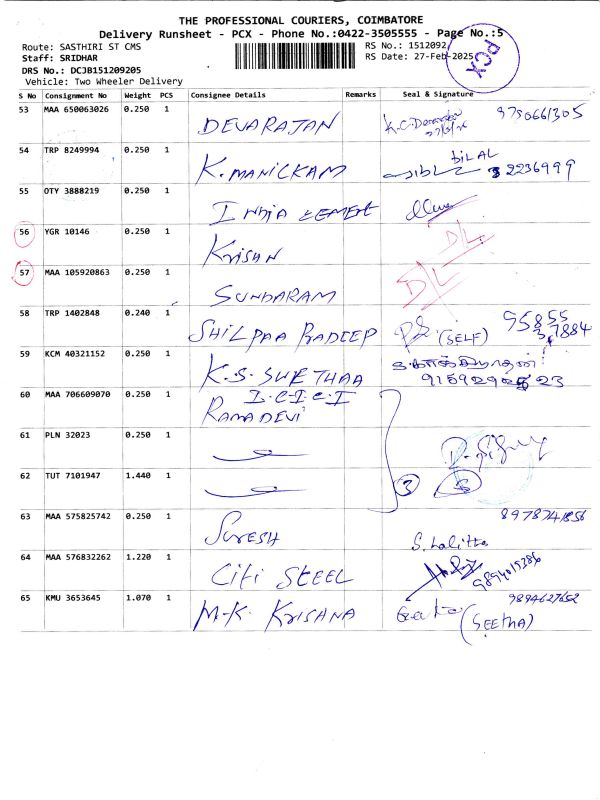 THE PROFESSIONAL COURIERS, COIMBATORE
Delivery Runsheet - PCX - Phone No.:0422-3505555 - Page No.:5
Route: SASTHIRI ST CMS RS No.: 1512092
Staff: SRIDHAR RS Date: 27-Feb-2025
PCX
DRS No.: DCJB151209205
Vehicle: Two Wheeler Delivery
S No Consignment No Weight PCS Consignee Details Remarks Seal & Signature
53 MAA 650063026 0.250 1 DEVARAJAN 9750661305
54 TRP 8249994 0.250 1 K. MANICKAM BILAL 2236999
55 OTY 3888219 0.250 1 INDIA CEMENT
56 YGR 10146 0.250 1 KRISAN D/L
57 MAA 105920863 0.250 1 SUNDARAM D/L
58 TRP 1402848 0.240 1 SHILPAA PRADEEP P.S. (SELF) 95855 37884
59 KCM 40321152 0.250 1 K.S. SWETHAA
60 MAA 706609070 0.250 1 I.C.I.C.I RAMADEVI
61 PLN 32023 0.250 1
62 TUT 7101947 1.440 1 3
63 MAA 575825742 0.250 1 SURESH S. Lalitha
64 MAA 576832262 1.220 1 CITI STEEL 9894015286
65 KMU 3653645 1.070 1 M.K. KRISANA Geetha (SEETHA) 9894627652